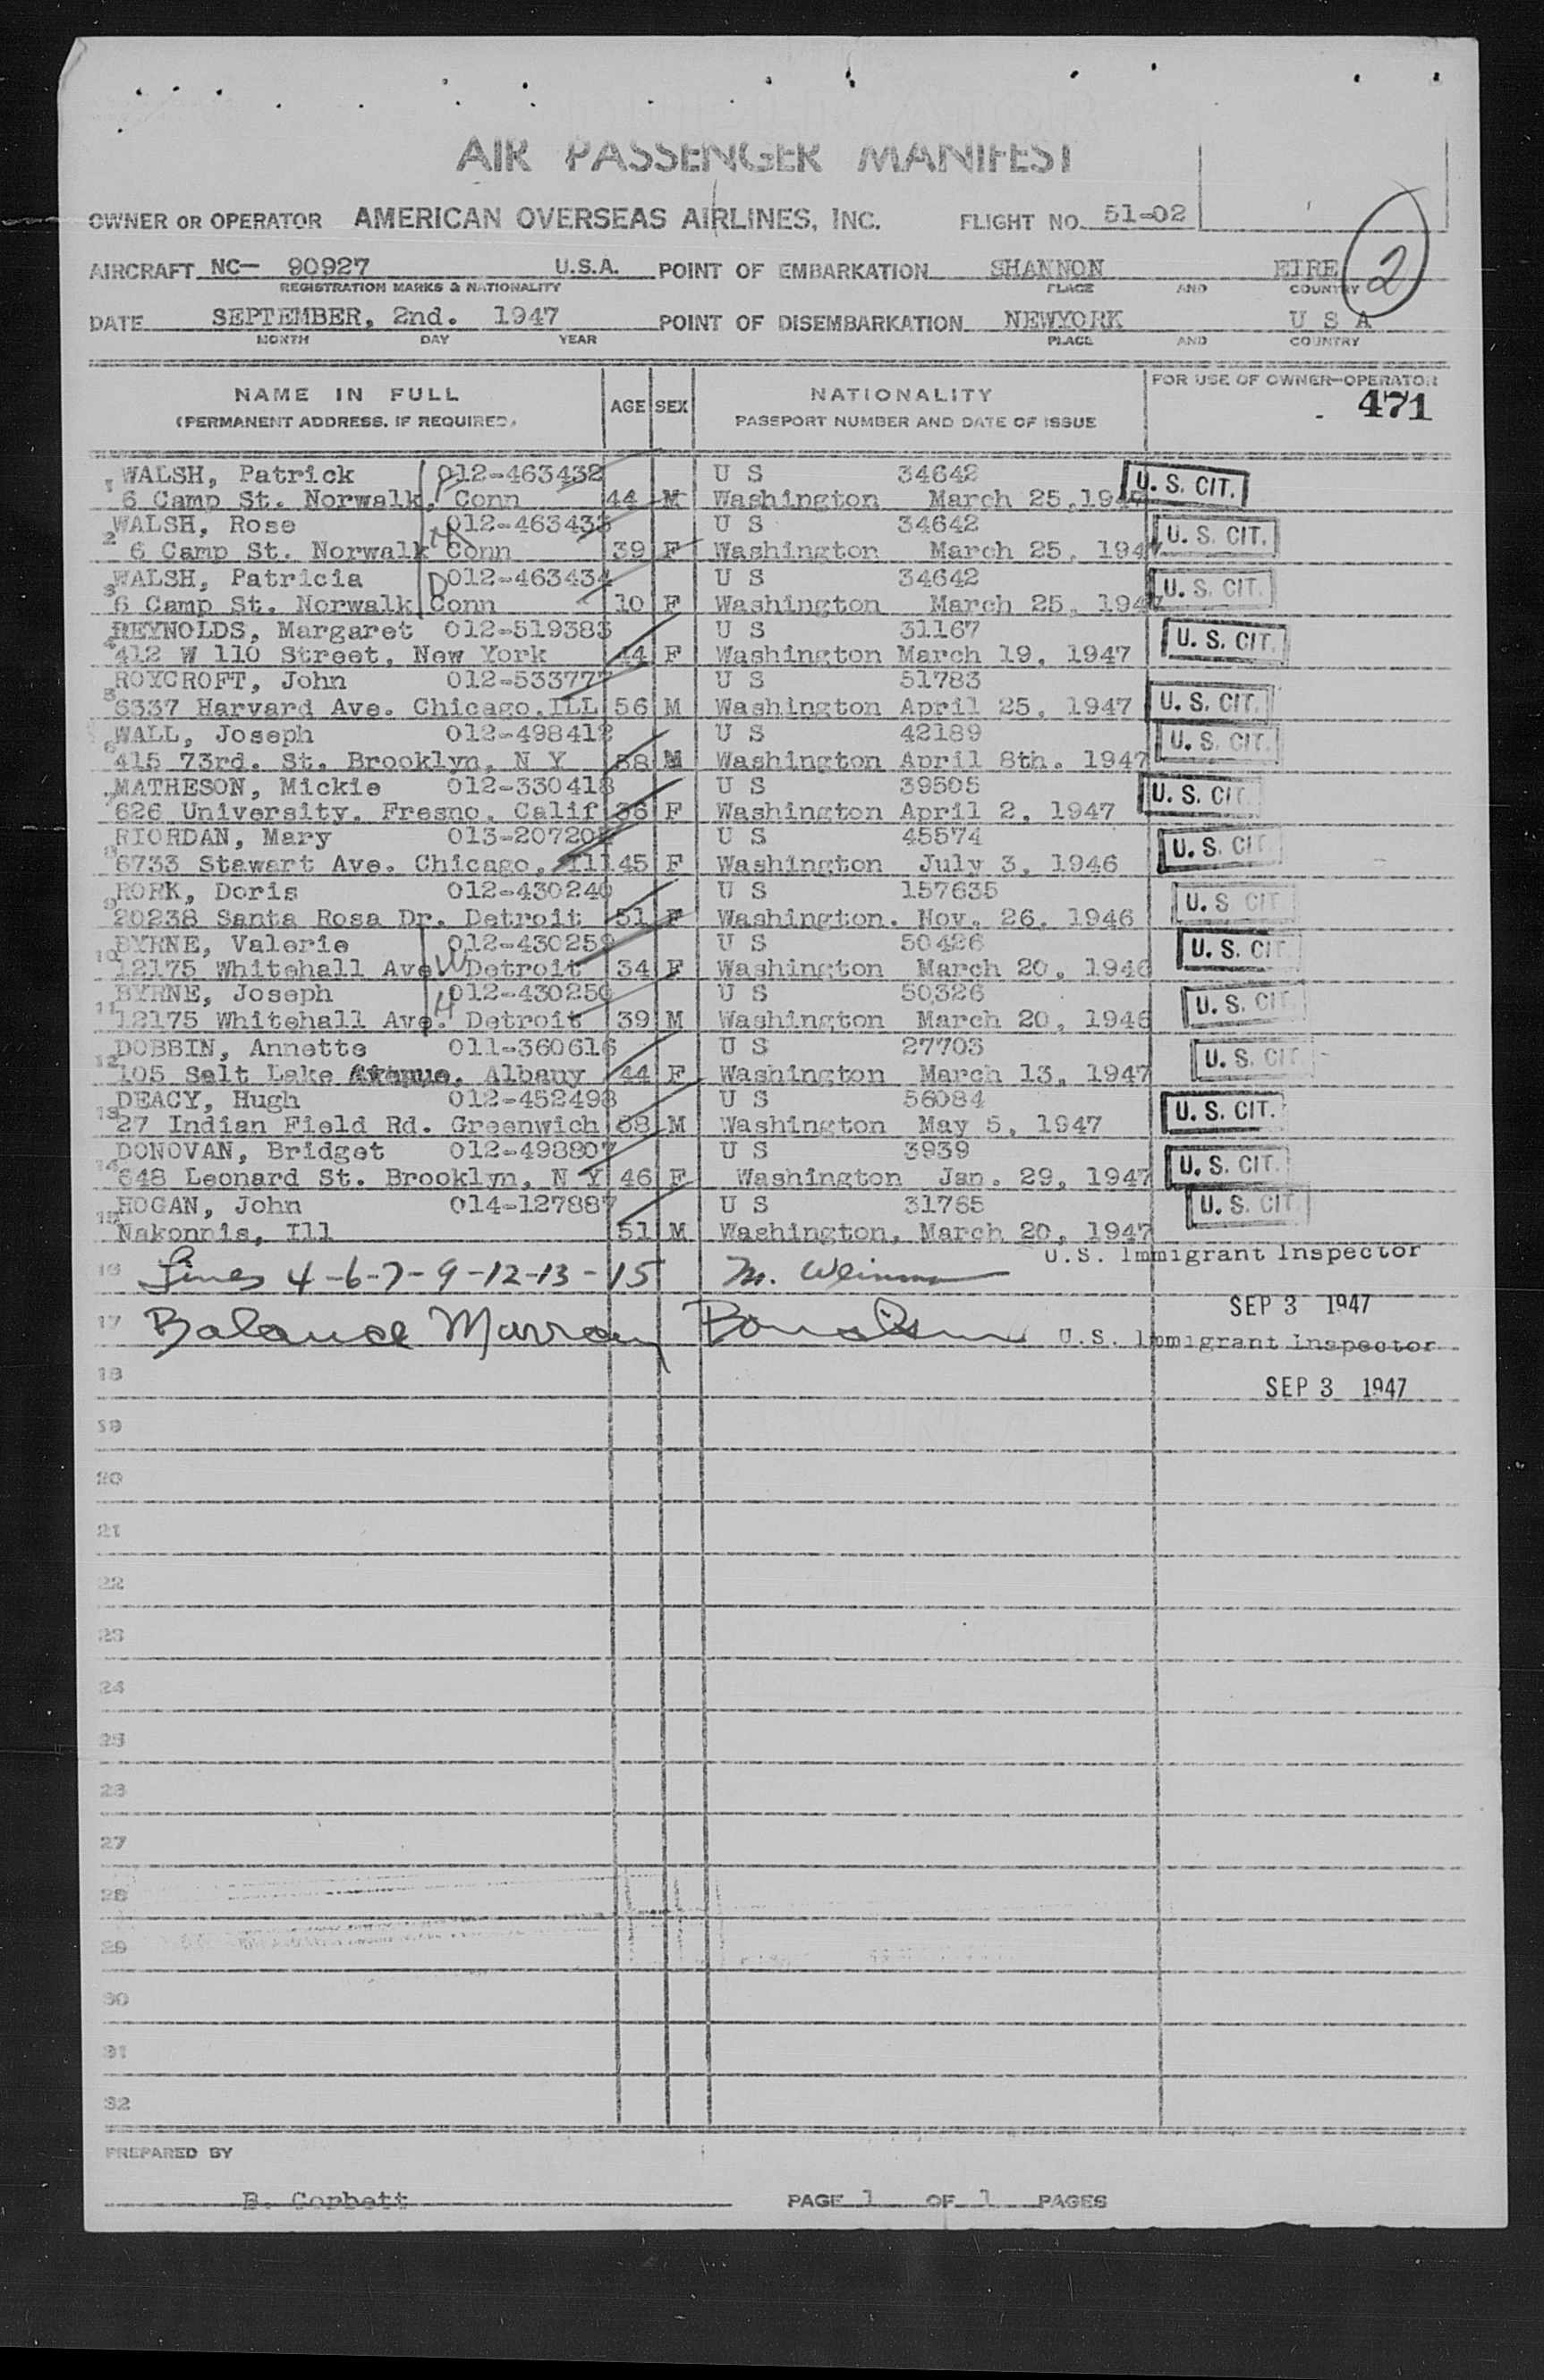 AIR PASSENGER MANIFEST
OWNER OR OPERATOR AMERICAN OVERSEAS AIRLINES, INC. FLIGHT NO. 51-02
2
AIRCRAFT NC- 90927 U.S.A. POINT OF EMBARKATION SHANNON EIRE
REGISTRATION MARKS & NATIONALITY PLACE AND COUNTRY
DATE SEPTEMBER, 2nd. 1947 POINT OF DISEMBARKATION NEWYORK U S A
MONTH DAY YEAR PLACE AND COUNTRY
NAME IN FULL AGE SEX NATIONALITY FOR USE OF OWNER-OPERATOR
(PERMANENT ADDRESS, IF REQUIRED) PASSPORT NUMBER AND DATE OF ISSUE 471
1 WALSH, Patrick 012-463432 U S 34642 U. S. CIT.
6 Camp St. Norwalk, Conn 44 M Washington March 25, 194
2 WALSH, Rose 012-463433 U S 34642 U. S. CIT.
6 Camp St. Norwalk Conn 39 F Washington March 25, 194
3 WALSH, Patricia 012-463434 U S 34642 U. S. CIT.
6 Camp St. Norwalk Conn 10 F Washington March 25, 194
4 REYNOLDS, Margaret 012-519383 U S 31167 U. S. CIT.
412 W 110 Street, New York 44 F Washington March 19, 1947
5 ROYCROFT, John 012-533777 U S 51783 U. S. CIT.
6337 Harvard Ave. Chicago, ILL 56 M Washington April 25, 1947
6 WALL, Joseph 012-498412 U S 42189 U. S. CIT.
415 73rd. St. Brooklyn, N Y 58 M Washington April 8th. 1947
7 MATHESON, Mickie 012-330418 U S 39505 U. S. CIT.
626 University, Fresno, Calif 36 F Washington April 2, 1947
8 RIORDAN, Mary 013-20720 U S 45574 U. S. CIT
6733 Stewart Ave. Chicago, Ill 45 F Washington July 3, 1946
9 RORK, Doris 012-430240 U S 157635 U. S CIT
20238 Santa Rosa Dr. Detroit 51 F Washington. Nov. 26, 1946
10 BYRNE, Valerie 012-430259 U S 50426 U. S. CIT
12175 Whitehall Ave W Detroit 34 F Washington March 20, 1946
11 BYRNE, Joseph 012-430250 U S 50326 U. S. CIT
12175 Whitehall Ave. H Detroit 39 M Washington March 20, 1946
12 DOBBIN, Annette 011-360616 U S 27703 U. S. CIT
105 Salt Lake Avenue, Albany 44 F Washington March 13, 1947
13 DEACY, Hugh 012-452498 U S 56084 U. S. CIT.
27 Indian Field Rd. Greenwich 68 M Washington May 5, 1947
14 DONOVAN, Bridget 012-498807 U S 3939 U. S. CIT.
648 Leonard St. Brooklyn, N Y 46 F Washington Jan. 29, 1947
15 HOGAN, John 014-127887 U S 31765 U. S. CIT
Nakonnis, Ill 51 M Washington, March 20, 1947
U.S. Immigrant Inspector
16 Lines 4-6-7-9-12-13-15 M.
SEP 3 1947
17 Balance Murray U.S. Immigrant Inspector
18
SEP 3 1947
19
20
21
22
23
24
25
26
27
28
29
30
31
32
PREPARED BY
B. Corbett PAGE 1 OF 1 PAGES